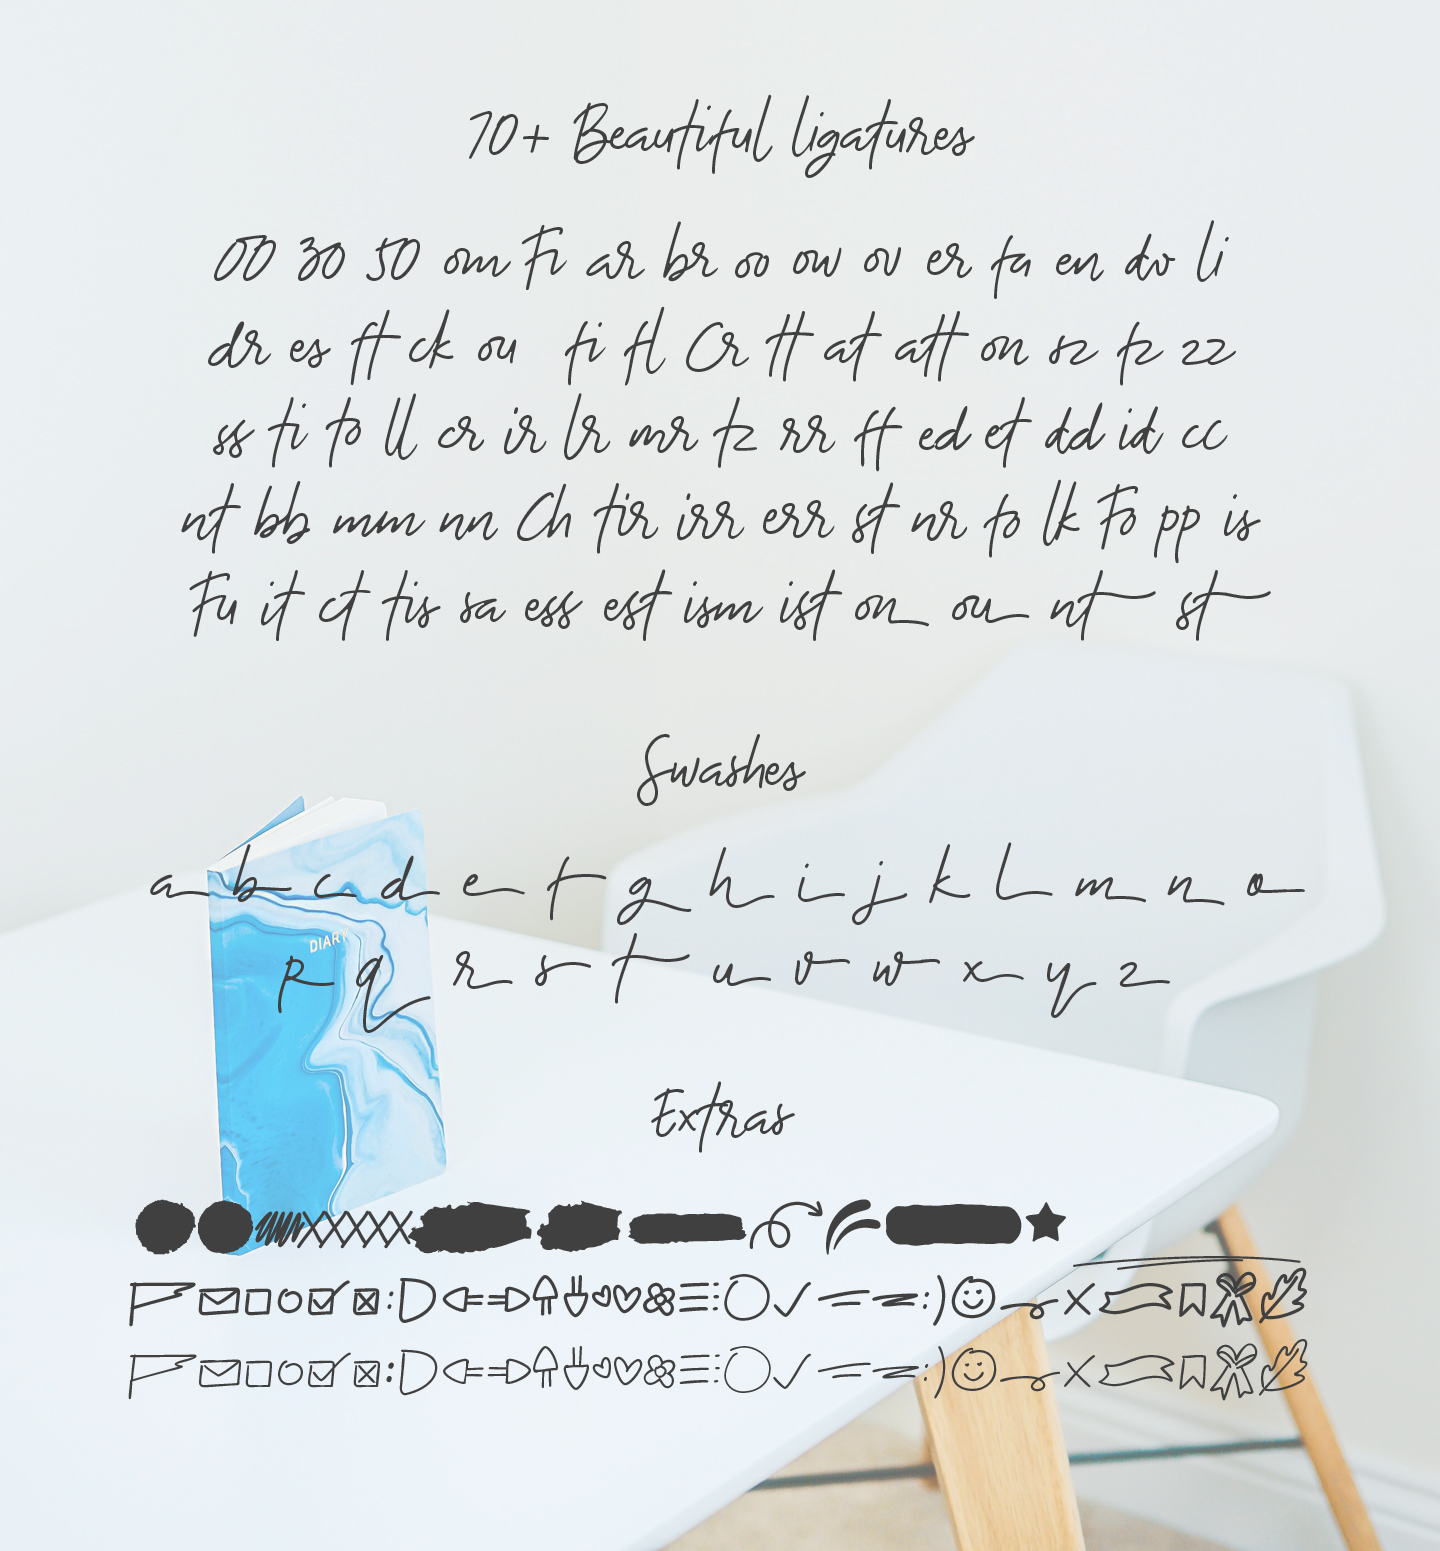 70+ Beautiful ligatures
00 30 50 om Fi ar br oo ow ov er fu en do li
dr es ft ck ou fi fl Cr tt at att on sz fz zz
ss ti to ll cr ir lr mr tz rr ff ed et dd id cc
nt bb mm nn Ch tir irr err st nr fo lk Fo pp is
Fu it ct tis sa ess est ism ist on ou nt st
Swashes
a b c d e f g h i j k l m n o
DIARY
p q r s t u v w x y z
Extras